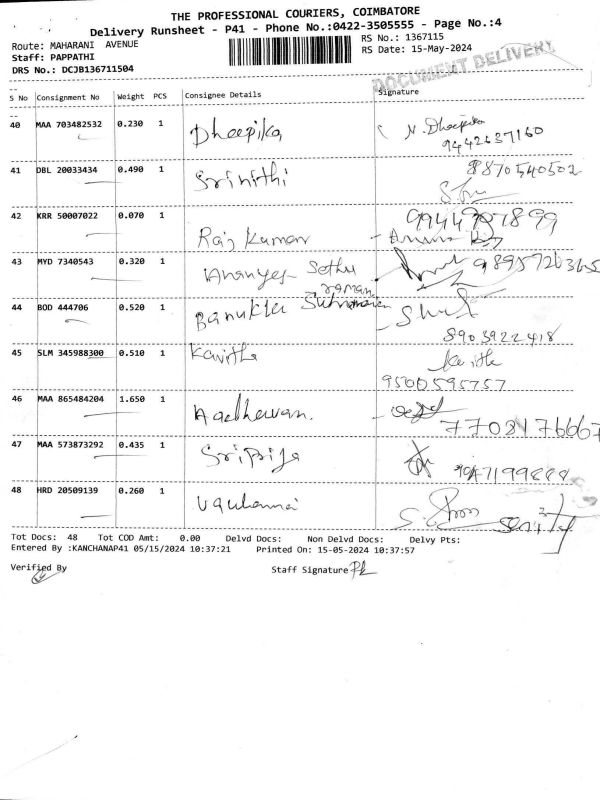 THE PROFESSIONAL COURIERS, COIMBATORE
Delivery Runsheet - P41 - Phone No.:0422-3505555 - Page No.:4
Route: MAHARANI AVENUE RS No.: 1367115
Staff: PAPPATHI RS Date: 15-May-2024
DRS No.: DCJB136711504
DOCUMENT DELIVERY
S No Consignment No Weight PCS Consignee Details Signature
40 MAA 703482532 0.230 1 Dheepika N. Dheepika
9442637160
41 DBL 20033434 0.490 1 Srinithi 8870540502
42 KRR 50007022 0.070 1 Raj Kumar
43 MYD 7340543 0.320 1 Sethu
raman 9895726365
44 BOD 444706 0.520 1
8903922418
45 SLM 345988300 0.510 1 Kavitha
9500595757
46 MAA 865484204 1.650 1 Aadhavan.
7708176667
47 MAA 573873292 0.435 1 Sripriya
48 HRD 20509139 0.260 1
Tot Docs: 48 Tot COD Amt: 0.00 Delvd Docs: Non Delvd Docs: Delvy Pts:
Entered By :KANCHANAP41 05/15/2024 10:37:21 Printed On: 15-05-2024 10:37:57
Verified By Staff Signature